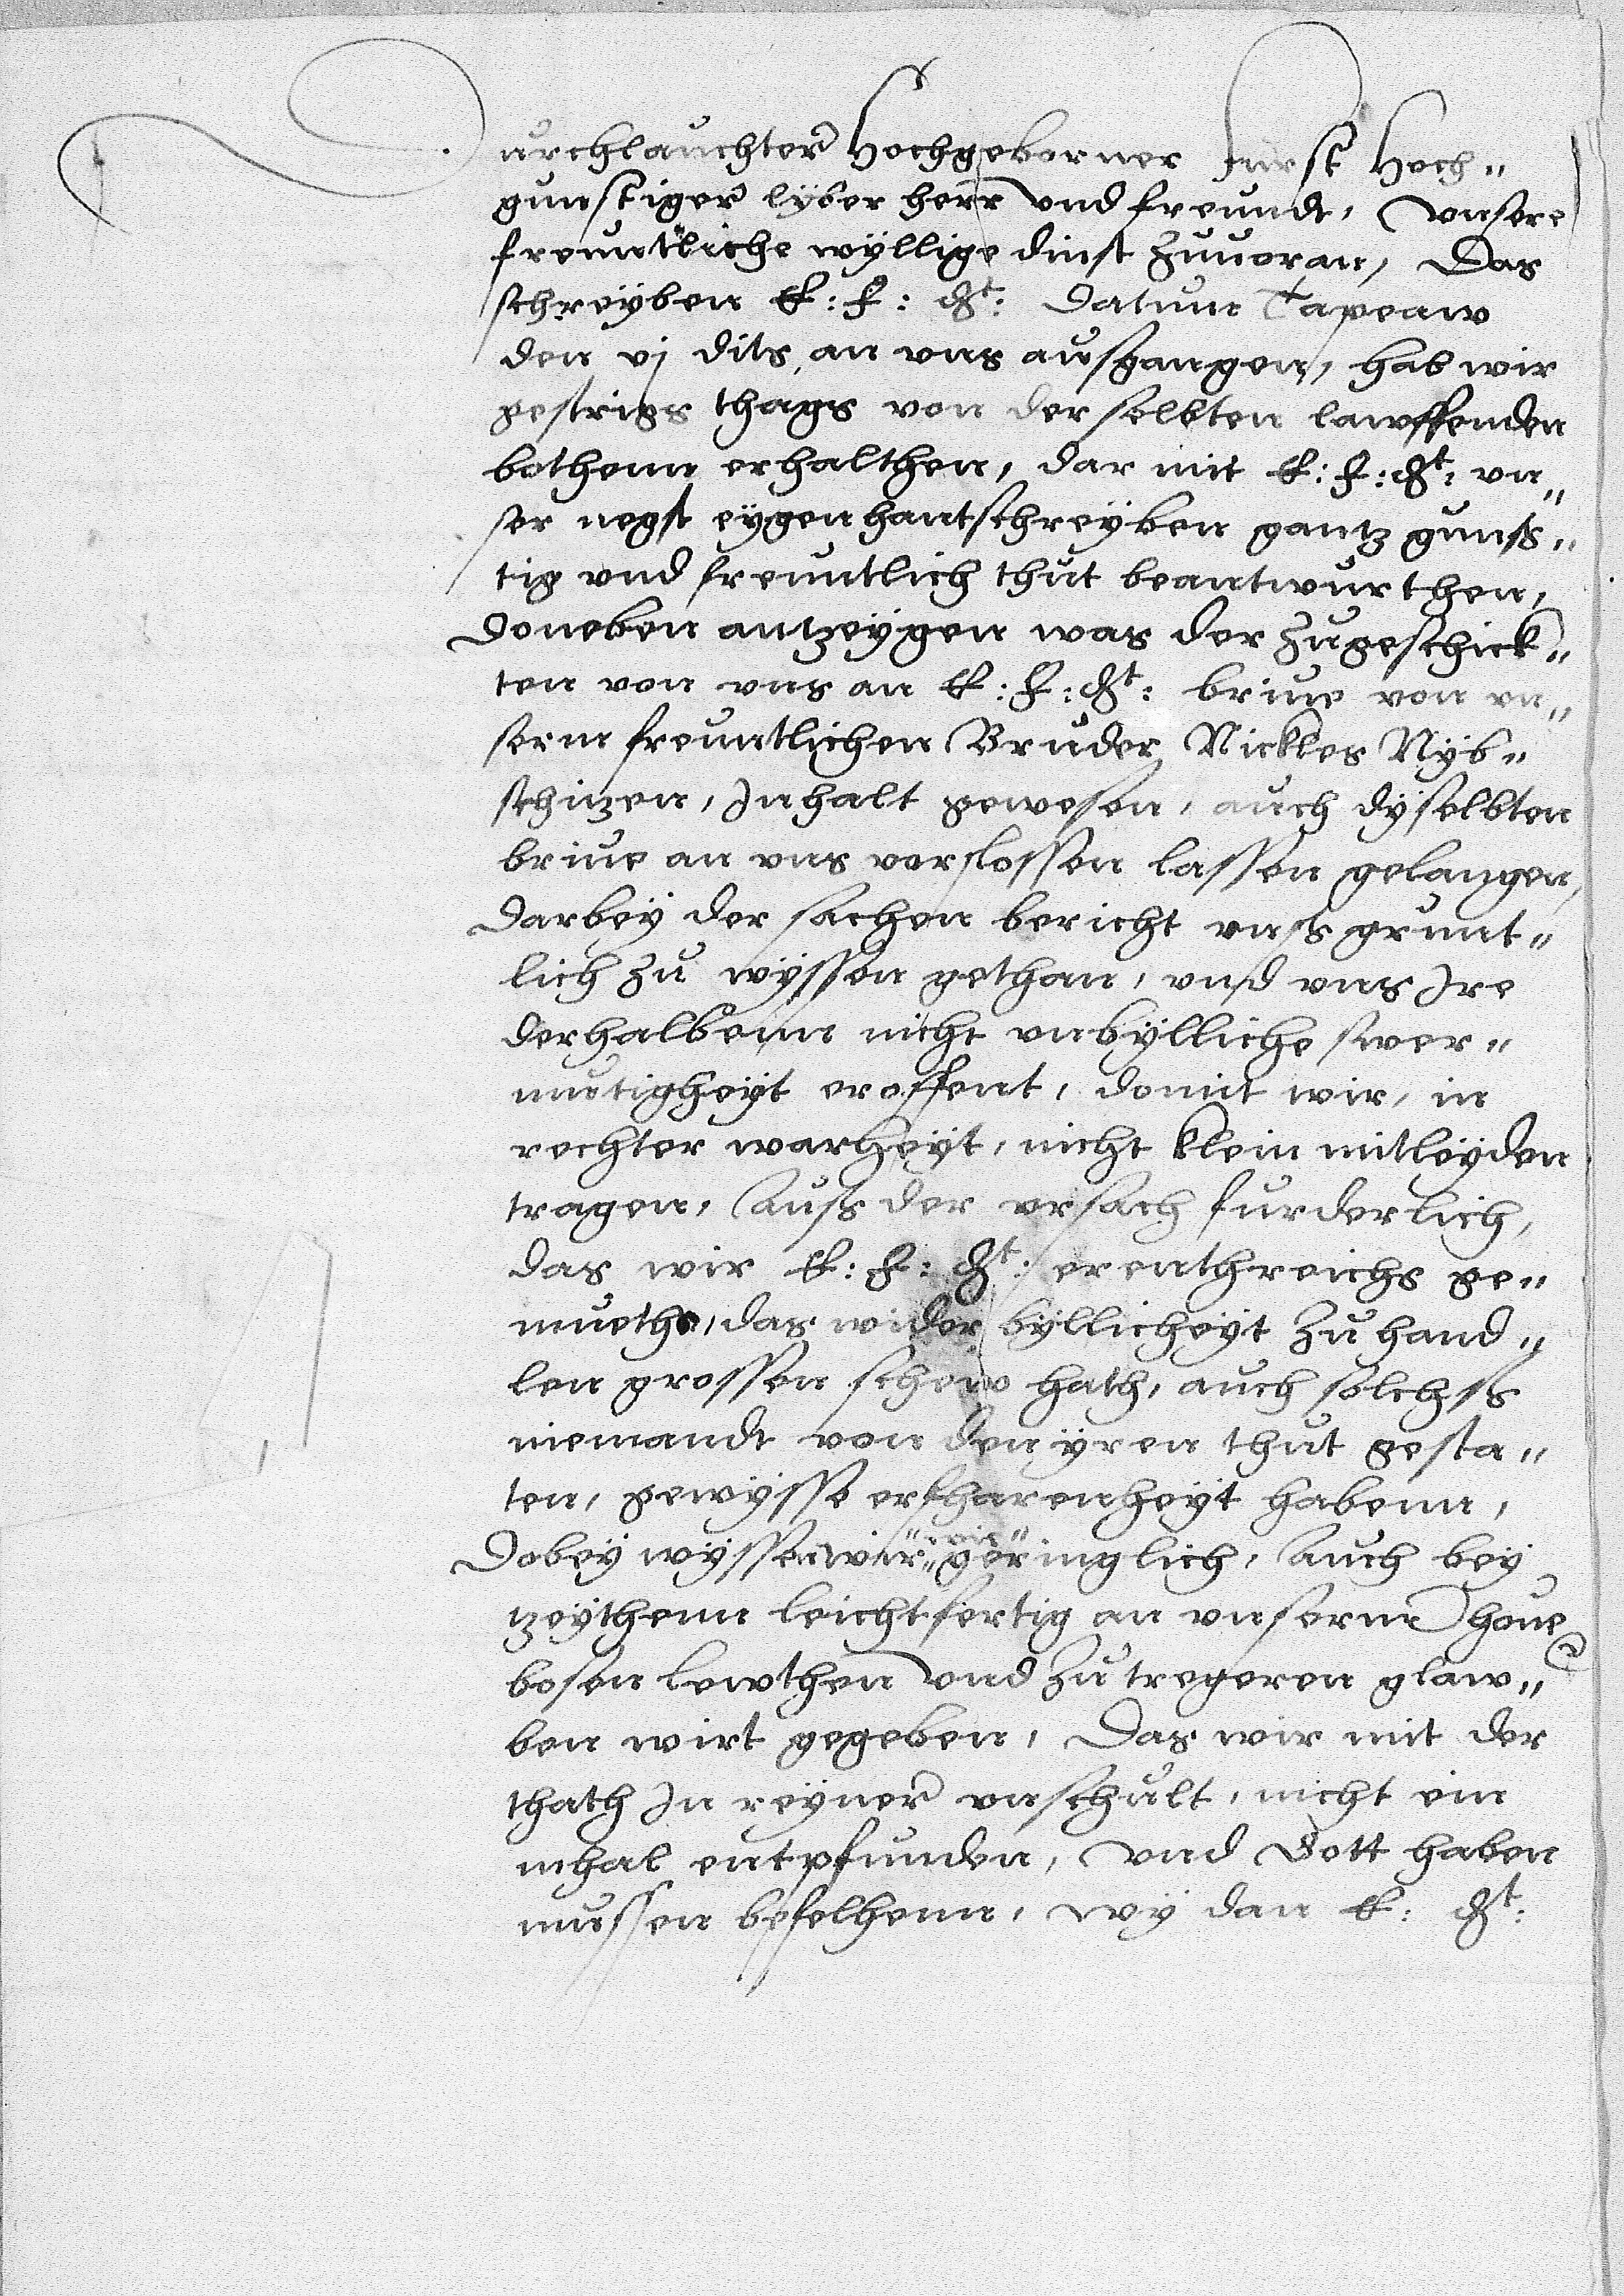 Durchlauchter Hochgeborner Furst Hoch„
gunstiger lyber herr vnd freundt, Vnsere
freuntliche wyllige dinst zuuoran, Das
schreyben E: F: Gt: Datum Tapeaw
den vj dits, an vns ausgangen, hab wir
gestrigs thags von derselbten lawffenden
bothenn erhalthen, dar mit E: F: Gt: vn„
ser negst eygenhantschreyben gantz guns„
tig vnd freuntlich thut beantwurthen,
Doneben antzeygen was der zugeschick„
ten von vns an E: F: Gt: briue von vn„
serm freuntlichen Bruder Nickles Nyb„
schizen, Inhalt gewesen, auch dyselbten
briue an vns verslossen lassen gelangen,
Darbey der sachen bericht vnss grunt„
lich zu wyssen gethan, vnd vns Ire
derhalbenn nicht vnbylliche swer„
mutigheyt eroffent, domit wir, in
rechter warheyt, nicht klein mitleyden
tragen, Auss der vrsach furderlich,
das wir E: F: Gt: erenthreichs ge„
mueths, das wider byllicheyt zu hand„
len grossen schew hath, auch solchss
niemandt von den yren thut gesta„
ten, gewysse erfharenheyt habenn,
Dobey wyssen wir wie geringlich, Auch bey
tzeythenn leichtfertig an vnserm houe
bosen lewthen vnd zutregeren glaw„
ben wirt gegeben, Das wir mit der
thath In reyner vnschult, nicht ein
mhal entpfunden, vnd Gott haben
mussen befelhenn, wy dan E: Gt: